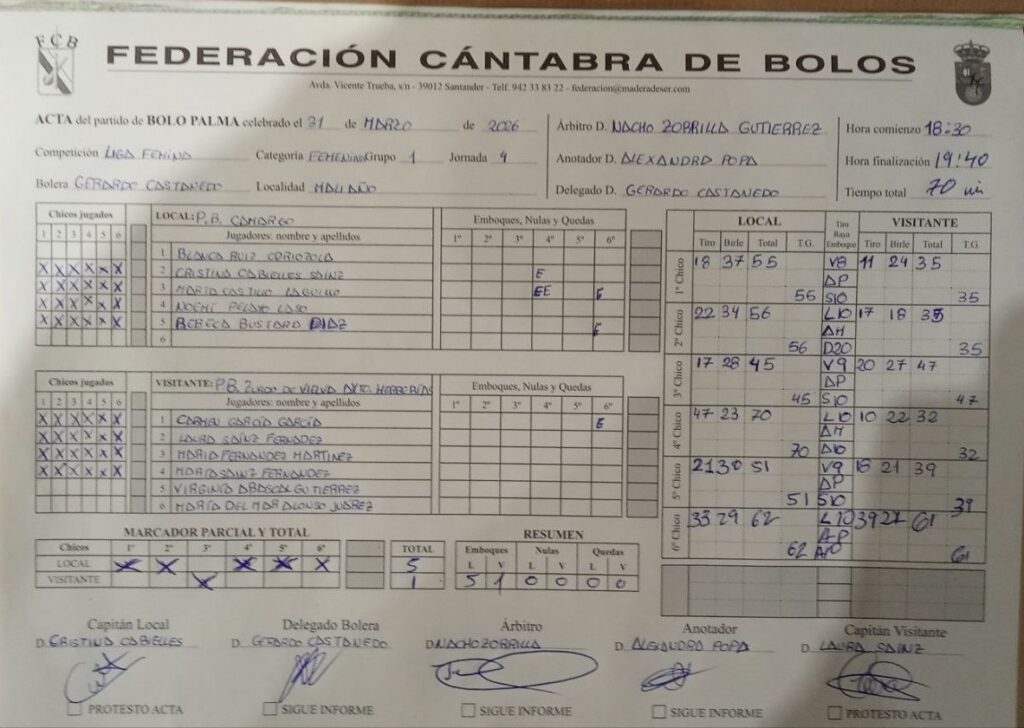 FCB
FEDERACIÓN CÁNTABRA DE BOLOS
Avda. Vicente Trueba, s/n - 39012 Santander - Telf. 942 33 83 22 - federacion@maderadeser.com
ACTA del partido de BOLO PALMA celebrado el 31 de MARZO de 2026
Competición LIGA FEMINA Categoría FEMENINA Grupo 1 Jornada 4
Bolera GERARDO CASTANEDO Localidad MALIAÑO
Árbitro D. NACHO ZORRILLA GUTIERREZ
Anotador D. ALEXANDRA POPA
Delegado D. GERARDO CASTANEDO
Hora comienzo 18:30
Hora finalización 19:40
Tiempo total 70 mi
Chicos jugados
1 2 3 4 5 6
LOCAL: P.B. CAMARGO
Jugadores: nombre y apellidos
Emboques, Nulas y Quedas
1º 2º 3º 4º 5º 6º
1 BLANCA RUIZ
X X X X X X 2 CRISTINA CABIELLES SAINZ E
X X X X X X 3 MARIA CASTILLO EE E
X X X X X X 4 NOEMI PELAYO LASO
X X X X X X 5 REBECA BUSTARA DIAZ E
6
Chicos jugados
1 2 3 4 5 6
VISITANTE: P.B. ZURDO DE BIELVA AYTO. HERRERIAS
Jugadores: nombre y apellidos
Emboques, Nulas y Quedas
1º 2º 3º 4º 5º 6º
X X X X X X 1 CARMEN GARCÍA GARCÍA E
X X X X X X 2 LAURA SAINZ FERNANDEZ
X X X X X X 3 MARIA FERNANDEZ MARTINEZ
X X X X X X 4 MARIA SAINZ FERNANDEZ
5 VIRGINIA ABASCAL GUTIERREZ
6 MARÍA DEL MAR ALONSO JUAREZ
LOCAL Tiro Raya Emboque VISITANTE
Tiro Birle Total T.G. Tiro Birle Total T.G.
1º Chico 18 37 55 V8 11 24 35
AP
56 S10 35
2º Chico 22 34 56 L10 17 18 35
AM
56 D20 35
3º Chico 17 28 45 V9 20 27 47
AP
45 S10 47
4º Chico 47 23 70 L10 10 22 32
AM
70 A10 32
5º Chico 21 30 51 V9 18 21 39
AP
51 S10 39
6º Chico 33 29 62 L10 39 22 61
AP
62 A10 61
MARCADOR PARCIAL Y TOTAL
Chicos 1º 2º 3º 4º 5º 6º TOTAL
LOCAL X X X X X 5
VISITANTE X 1
RESUMEN
Emboques Nulas Quedas
L V L V L V
5 1 0 0 0 0
Capitán Local Delegado Bolera Árbitro Anotador Capitán Visitante
D. CRISTINA CABIELLES D. GERARDO CASTANEDO D. NACHO ZORRILLA D. ALEXANDRA POPA D. LAURA SAINZ
PROTESTO ACTA SIGUE INFORME SIGUE INFORME SIGUE INFORME PROTESTO ACTA